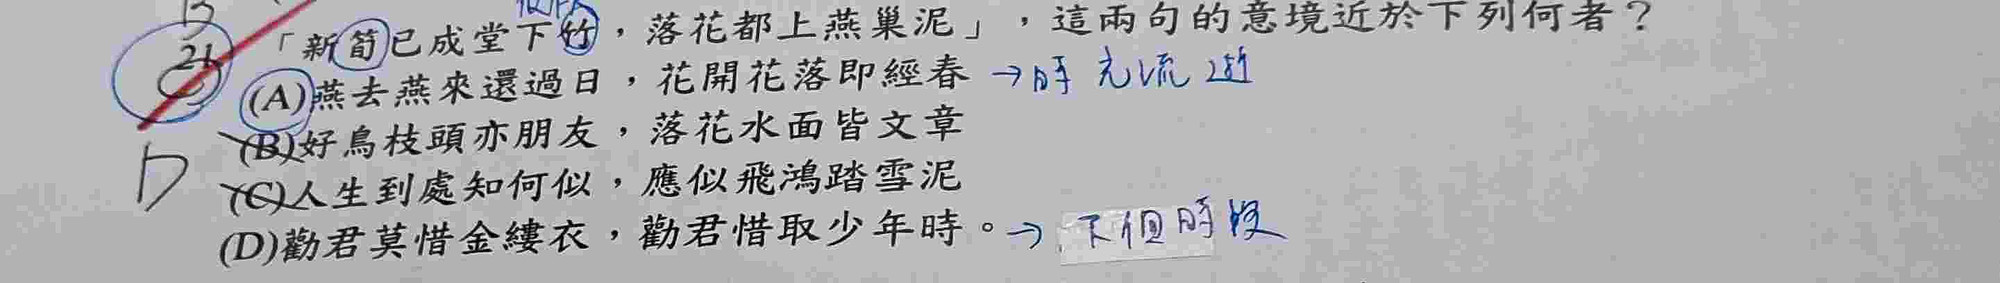 13
21 「新筍已成堂下竹，落花都上燕巢泥」，這兩句的意境近於下列何者？
(A)燕去燕來還過日，花開花落即經春 →時光流逝
(B)好鳥枝頭亦朋友，落花水面皆文章
D (C)人生到處知何似，應似飛鴻踏雪泥
(D)勸君莫惜金縷衣，勸君惜取少年時。→下個時段